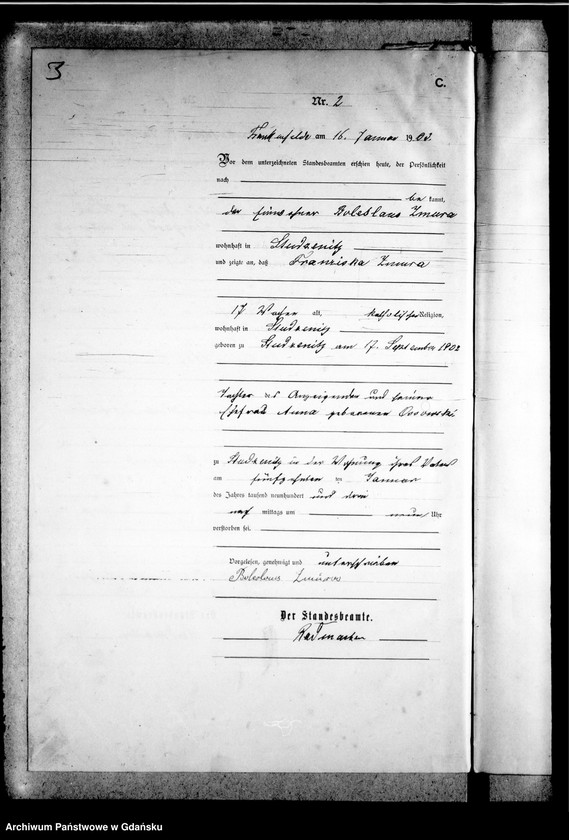 3
C.
Nr. 2
am 16. Januar 1903.
Vor dem unterzeichneten Standesbeamten erschien heute, der Persönlichkeit
nach
be kannt,
der Einwohner Boleslaus Zmura
wohnhaft in Studzenitz
und zeigte an, daß Franziska Zmura
17 Wochen alt, katholischer Religion,
wohnhaft in Studzenitz
geboren zu Studzenitz am 17. September 1902
Tochter des Anzeigenden und seiner
Ehefrau Anna geborenen
zu Studzenitz in der Wohnung ihres Vaters
am fünfzehnten ten Januar
des Jahres tausend neunhundert und drei
nach mittags um neun Uhr
verstorben sei.
Vorgelesen, genehmigt und unterschrieben
Boleslaus
Der Standesbeamte.
Archiwum Państwowe w Gdańsku